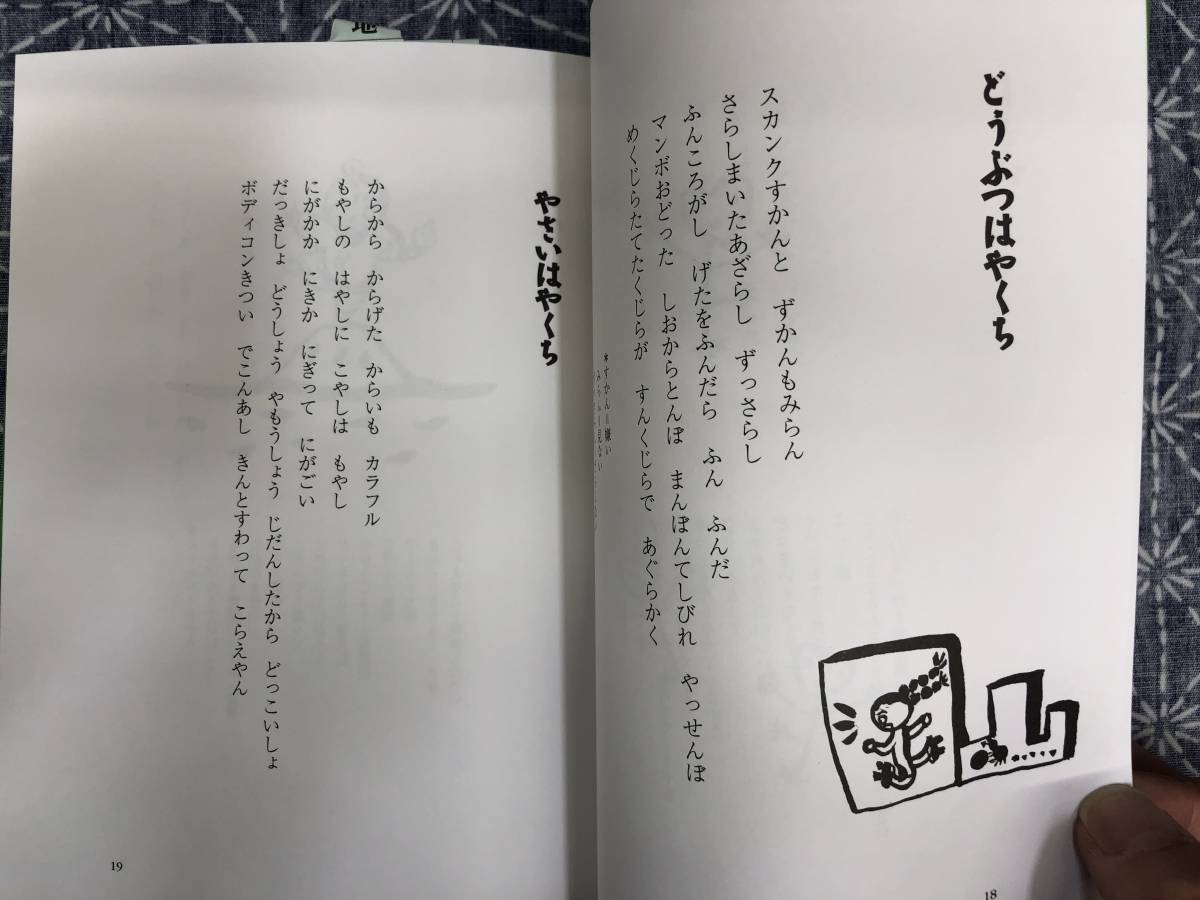 地
どうぶつはやくち
スカンクすかんと ずかんもみらん
さらしまいたあざらし ずっさらし
ふんころがし げたをふんだら ふん ふんだ
マンボおどった しおからとんぼ まんぼんてしびれ やっせんぼ
めくじらたてたくじらが すんくじらで あぐらかく
*すかん=嫌い
みらん=見ない
18
やさいはやくち
からから からげた からいも カラフル
もやしの はやしに こやしは もやし
にがかか にきか にぎって にがごい
だっきしょ どうしょう やもうしょう じだんしたから どっこいしょ
ボディコンきつい でこんあし きんとすわって こらえやん
19